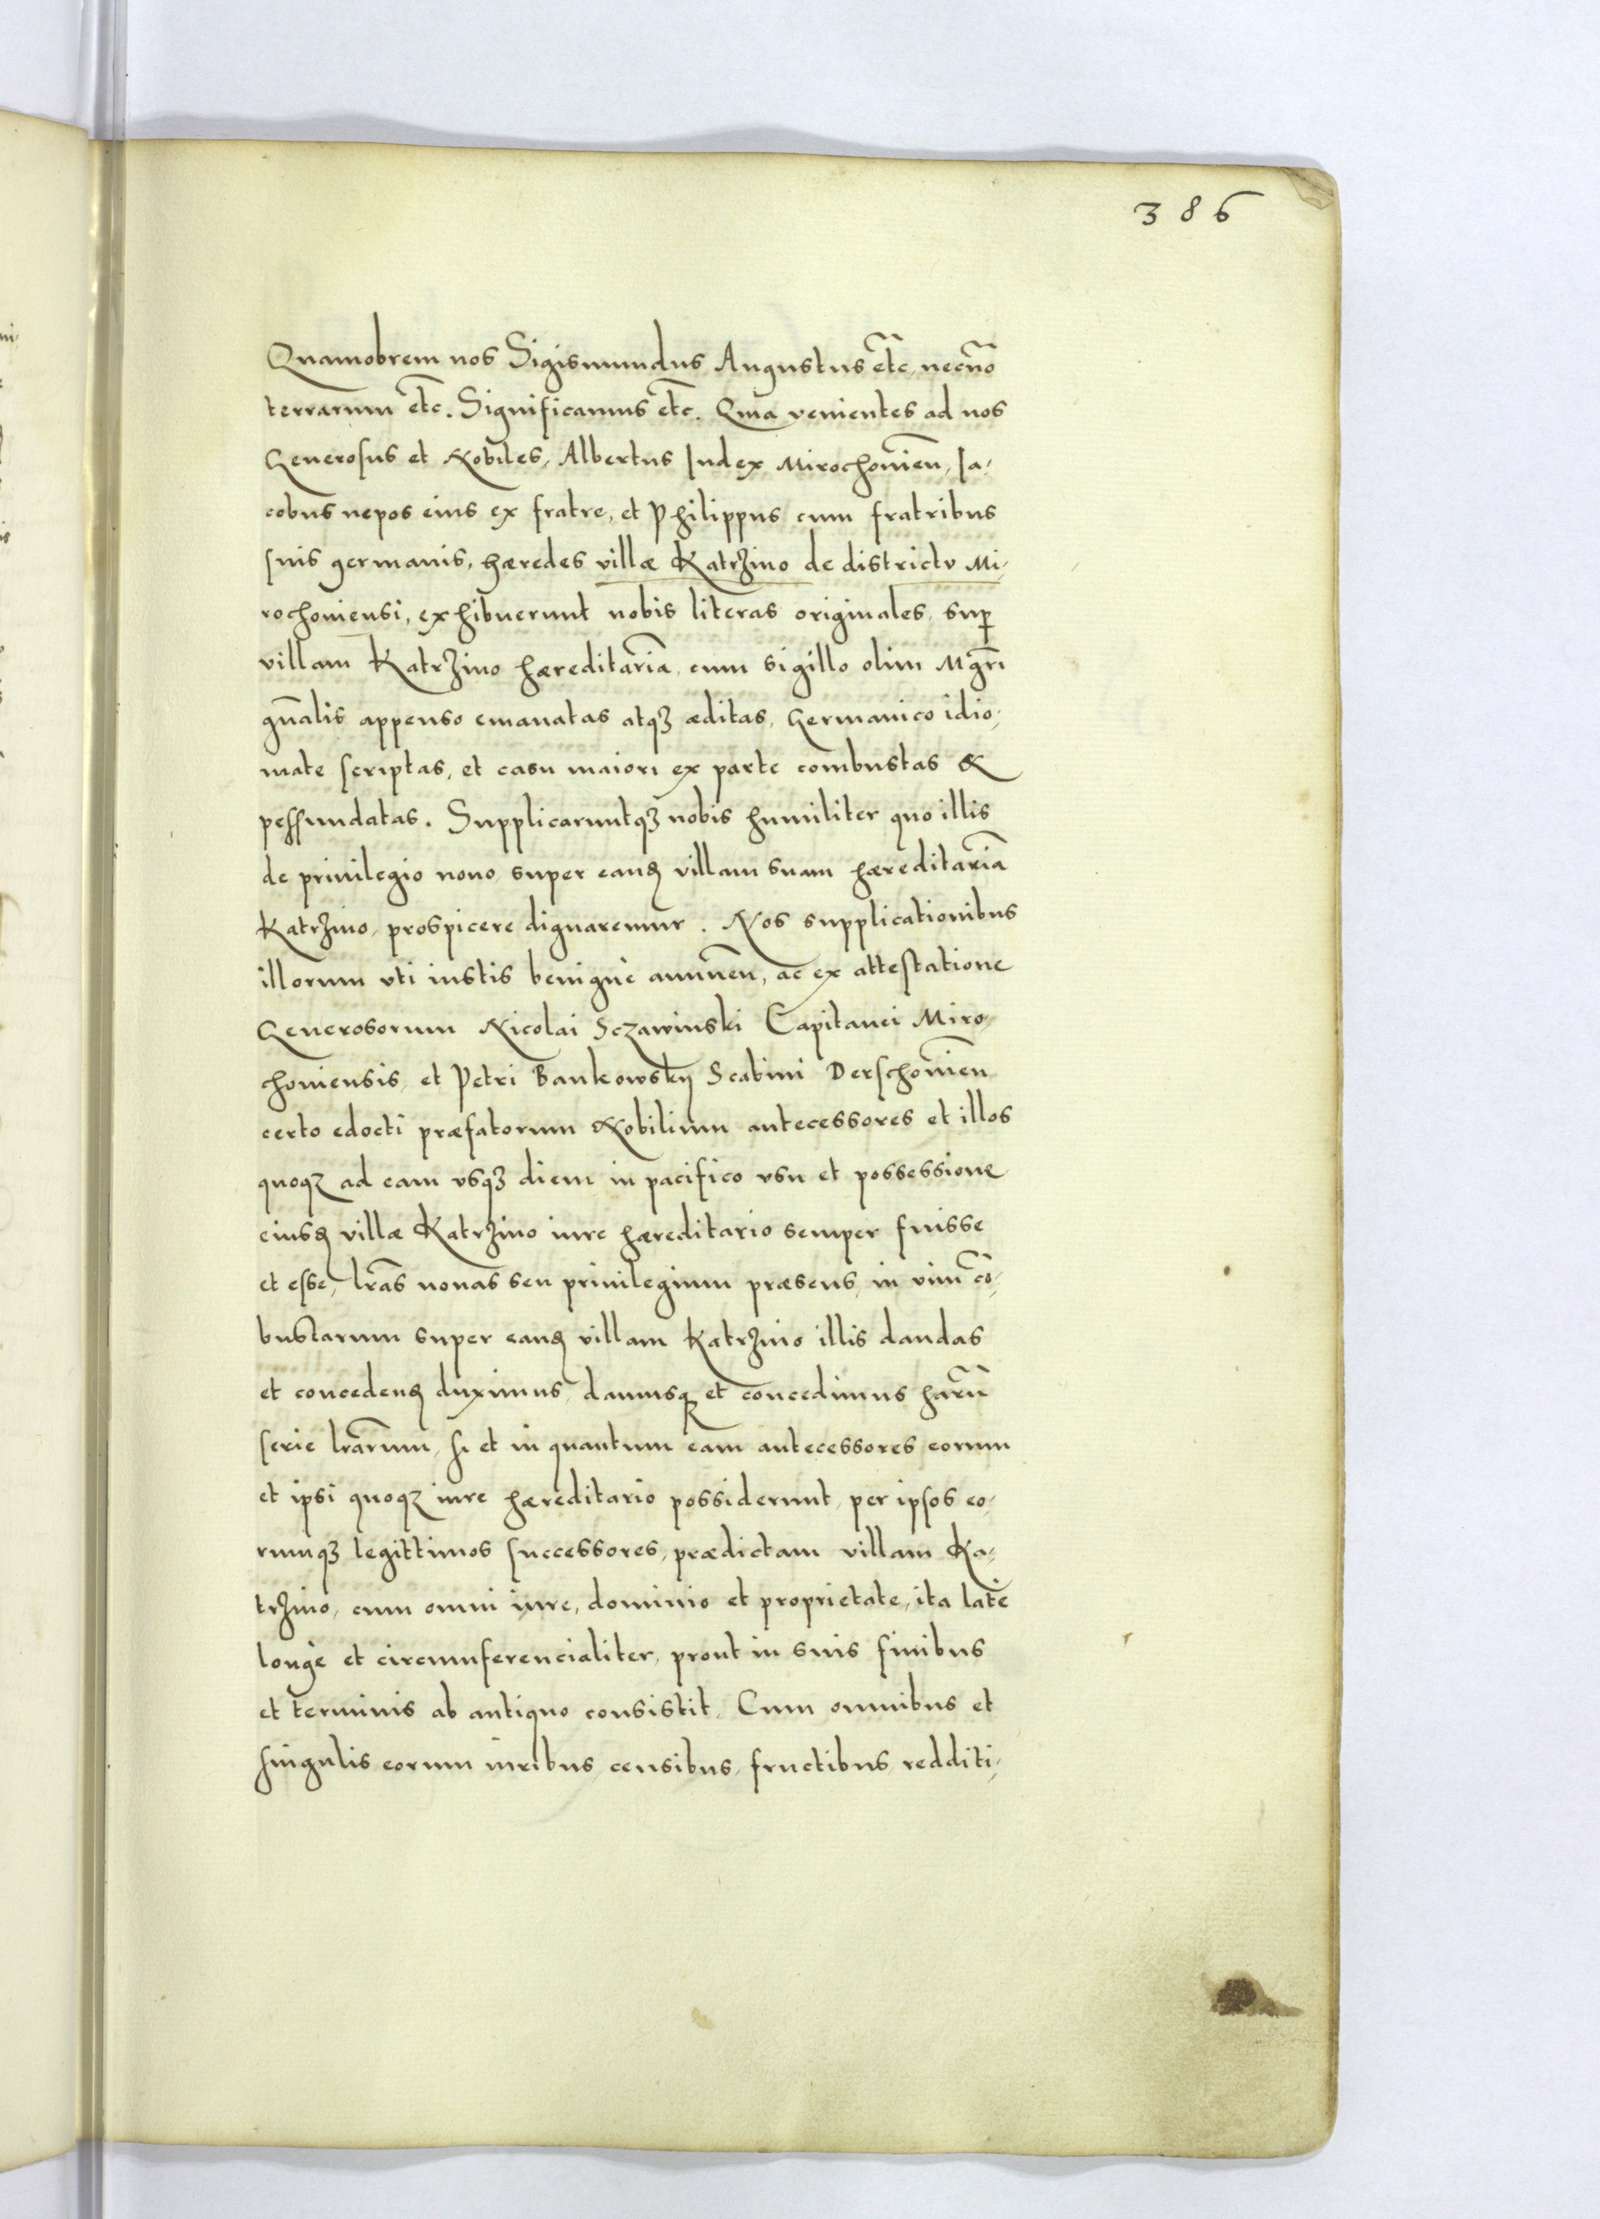 386
Quamobrem nos Sigismundus Augustus etc̃, necnõ
terrarum etc̃. Significamus etc̃. Quia venientes ad nos
Generosus et Nobiles, Albertus Iudex Mirochonień, Ia-
cobus nepos eius ex fratre, et Philippus cum fratribus
suis germanis, hæredes villæ Katrzino de districtu Mi-
rochoniensi, exhibuerunt nobis literas originales, sup̱
villam Katrzino hæreditariã, cum sigillo olim Mgr̃i
gñalis appenso emanatas atqꝫ æditas, Germanico idio-
mate scriptas, et casu maiori ex parte combustas &
pessundatas. Supplicaruntqꝫ nobis humiliter quo illis
de priuilegio nouo super eanđ villam suam hæreditariã
Katrzino, prospicere dignaremur. Nos supplicationibus
illorum vti iustis benignè annueñ, ac ex attestatione
Generosorum Nicolai Sczawinski Capitanei Miro-
choniensis, et Petri Bankowskij Scabini Derschonień
certo edocti præfatorum Nobilium antecessores et illos
quoqꝫ ad eam vsqꝫ diem in pacifico vsu et possessione
eiusđ villæ Katrzino iure hæreditario semper fuisse
et esse, lr̃as nouas seu priuilegium præsens, in vim cõ-
bustarum super eanđ villam Katrzino illis dandas
et concedenđ duximus, damusqꝫ et concedimus harũ
serie lr̃arum, si et in quantum eam antecessores eorum
et ipsi quoqꝫ iure hæreditario possiderunt, per ipsos eo-
rumqꝫ legittimos successores, prædictam villam Ka-
trzino, cum omni iure, dominio et proprietate, ita latè
longè et circumferencialiter, prout in suis finibus
et terminis ab antiquo consistit, Cum omnibus et
singulis eorum iuribus, censibus, fructibus, redditi-